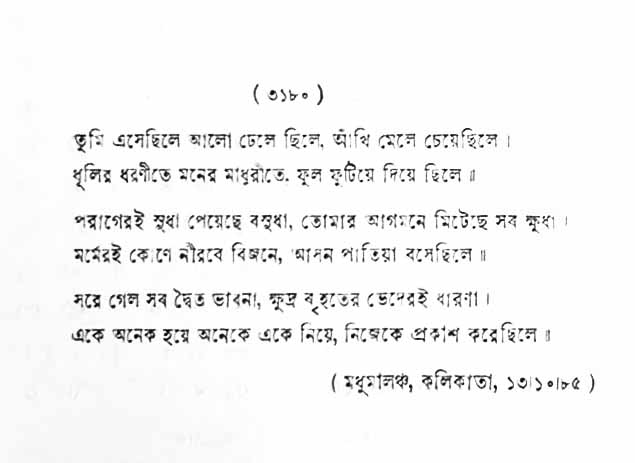 ( ৩১৮০ )
তুমি এসেছিলে আলো ঢেলে ছিলে, আঁখি মেলে চেয়েছিলে ।
ধূলির ধরণীতে মনের মাধুরীতে, ফুল ফুটিয়ে দিয়ে ছিলে ॥
পরাগেরই সুধা পেয়েছে বসুধা, তোমার আগমনে মিটেছে সব ক্ষুধা ।
মর্মেরই কোণে নীরবে বিজনে, আসন পাতিয়া বসেছিলে ॥
সরে গেল সব দ্বৈত ভাবনা, ক্ষুদ্র বৃহতের ভেদেরই ধারণা ।
একে অনেক হয়ে অনেকে একে নিয়ে, নিজেকে প্রকাশ করেছিলে ॥
( মধুমালঞ্চ, কলিকাতা, ১৩।১০।৮৫ )